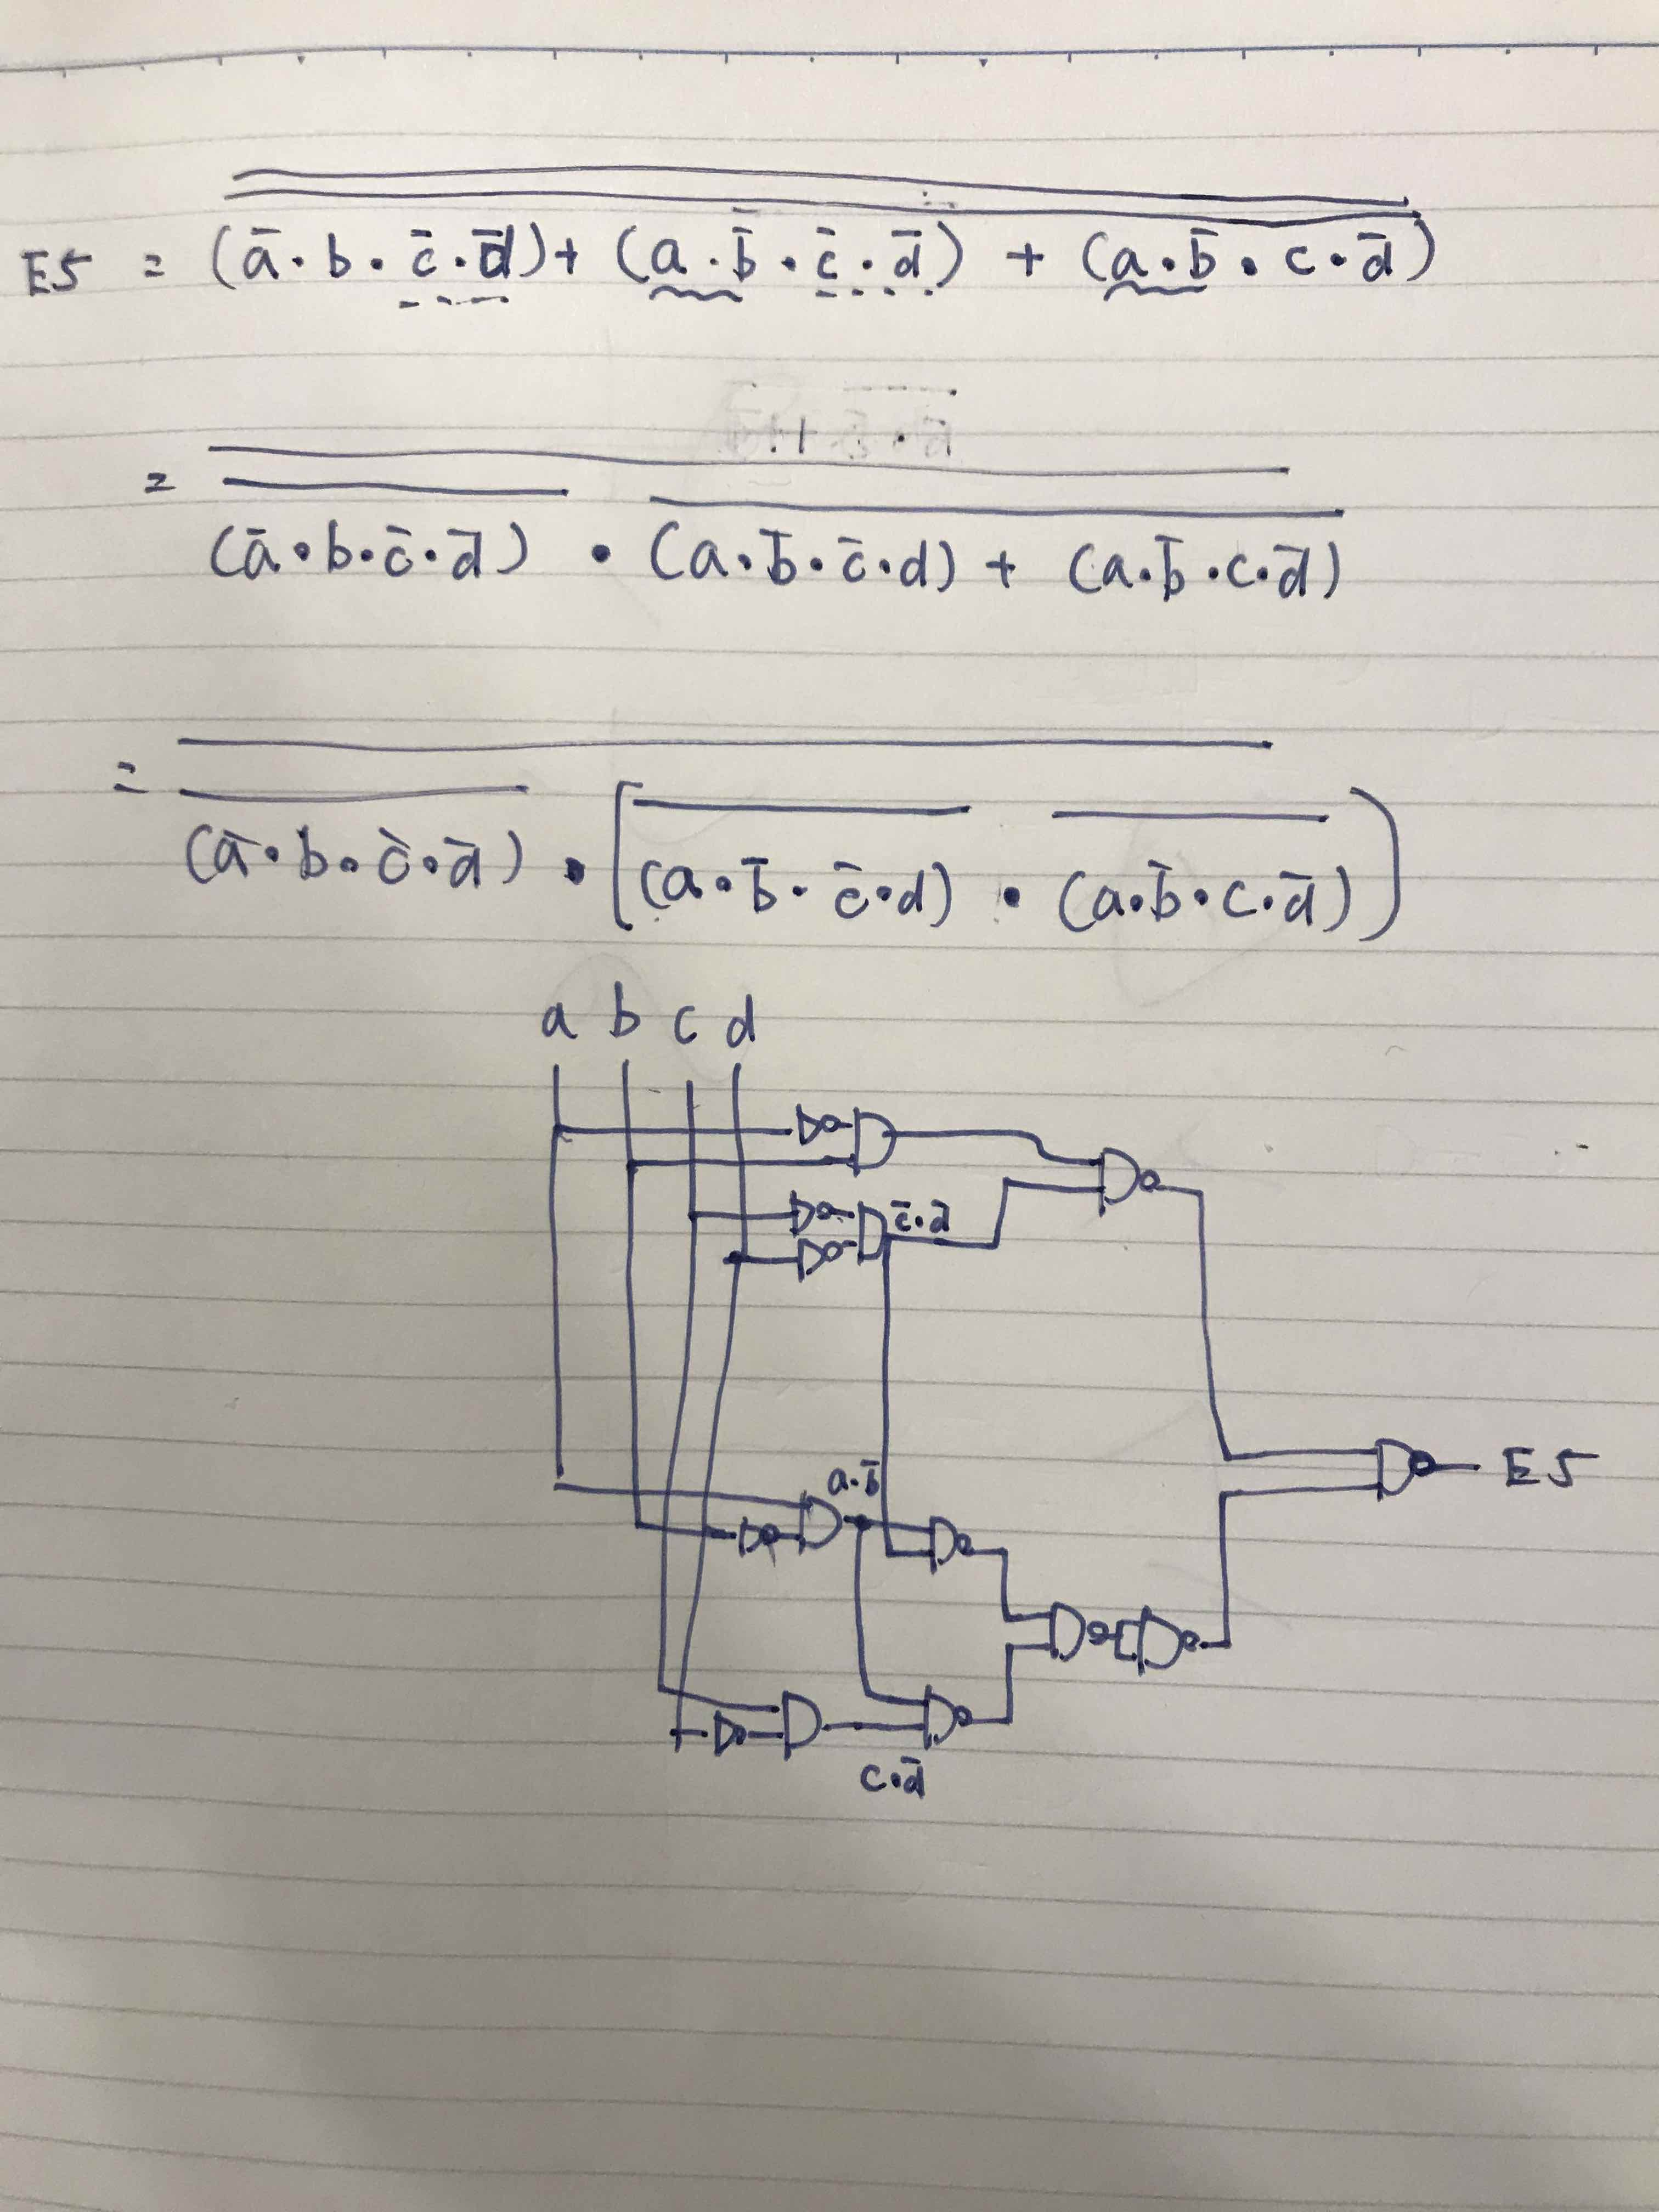 E5 = (ā·b·c̄·d̄)+(a·b̄·c̄·d̄)+(a·b̄·c·d̄)
= (ā·b·c̄·d̄)·(a·b̄·c̄·d)+(a·b̄·c·d̄)
= (ā·b·c̄·d̄)·[(a·b̄·c̄·d)·(a·b̄·c·d̄)]
a b c d
c̄·d̄
a·b̄
E5
c·d̄